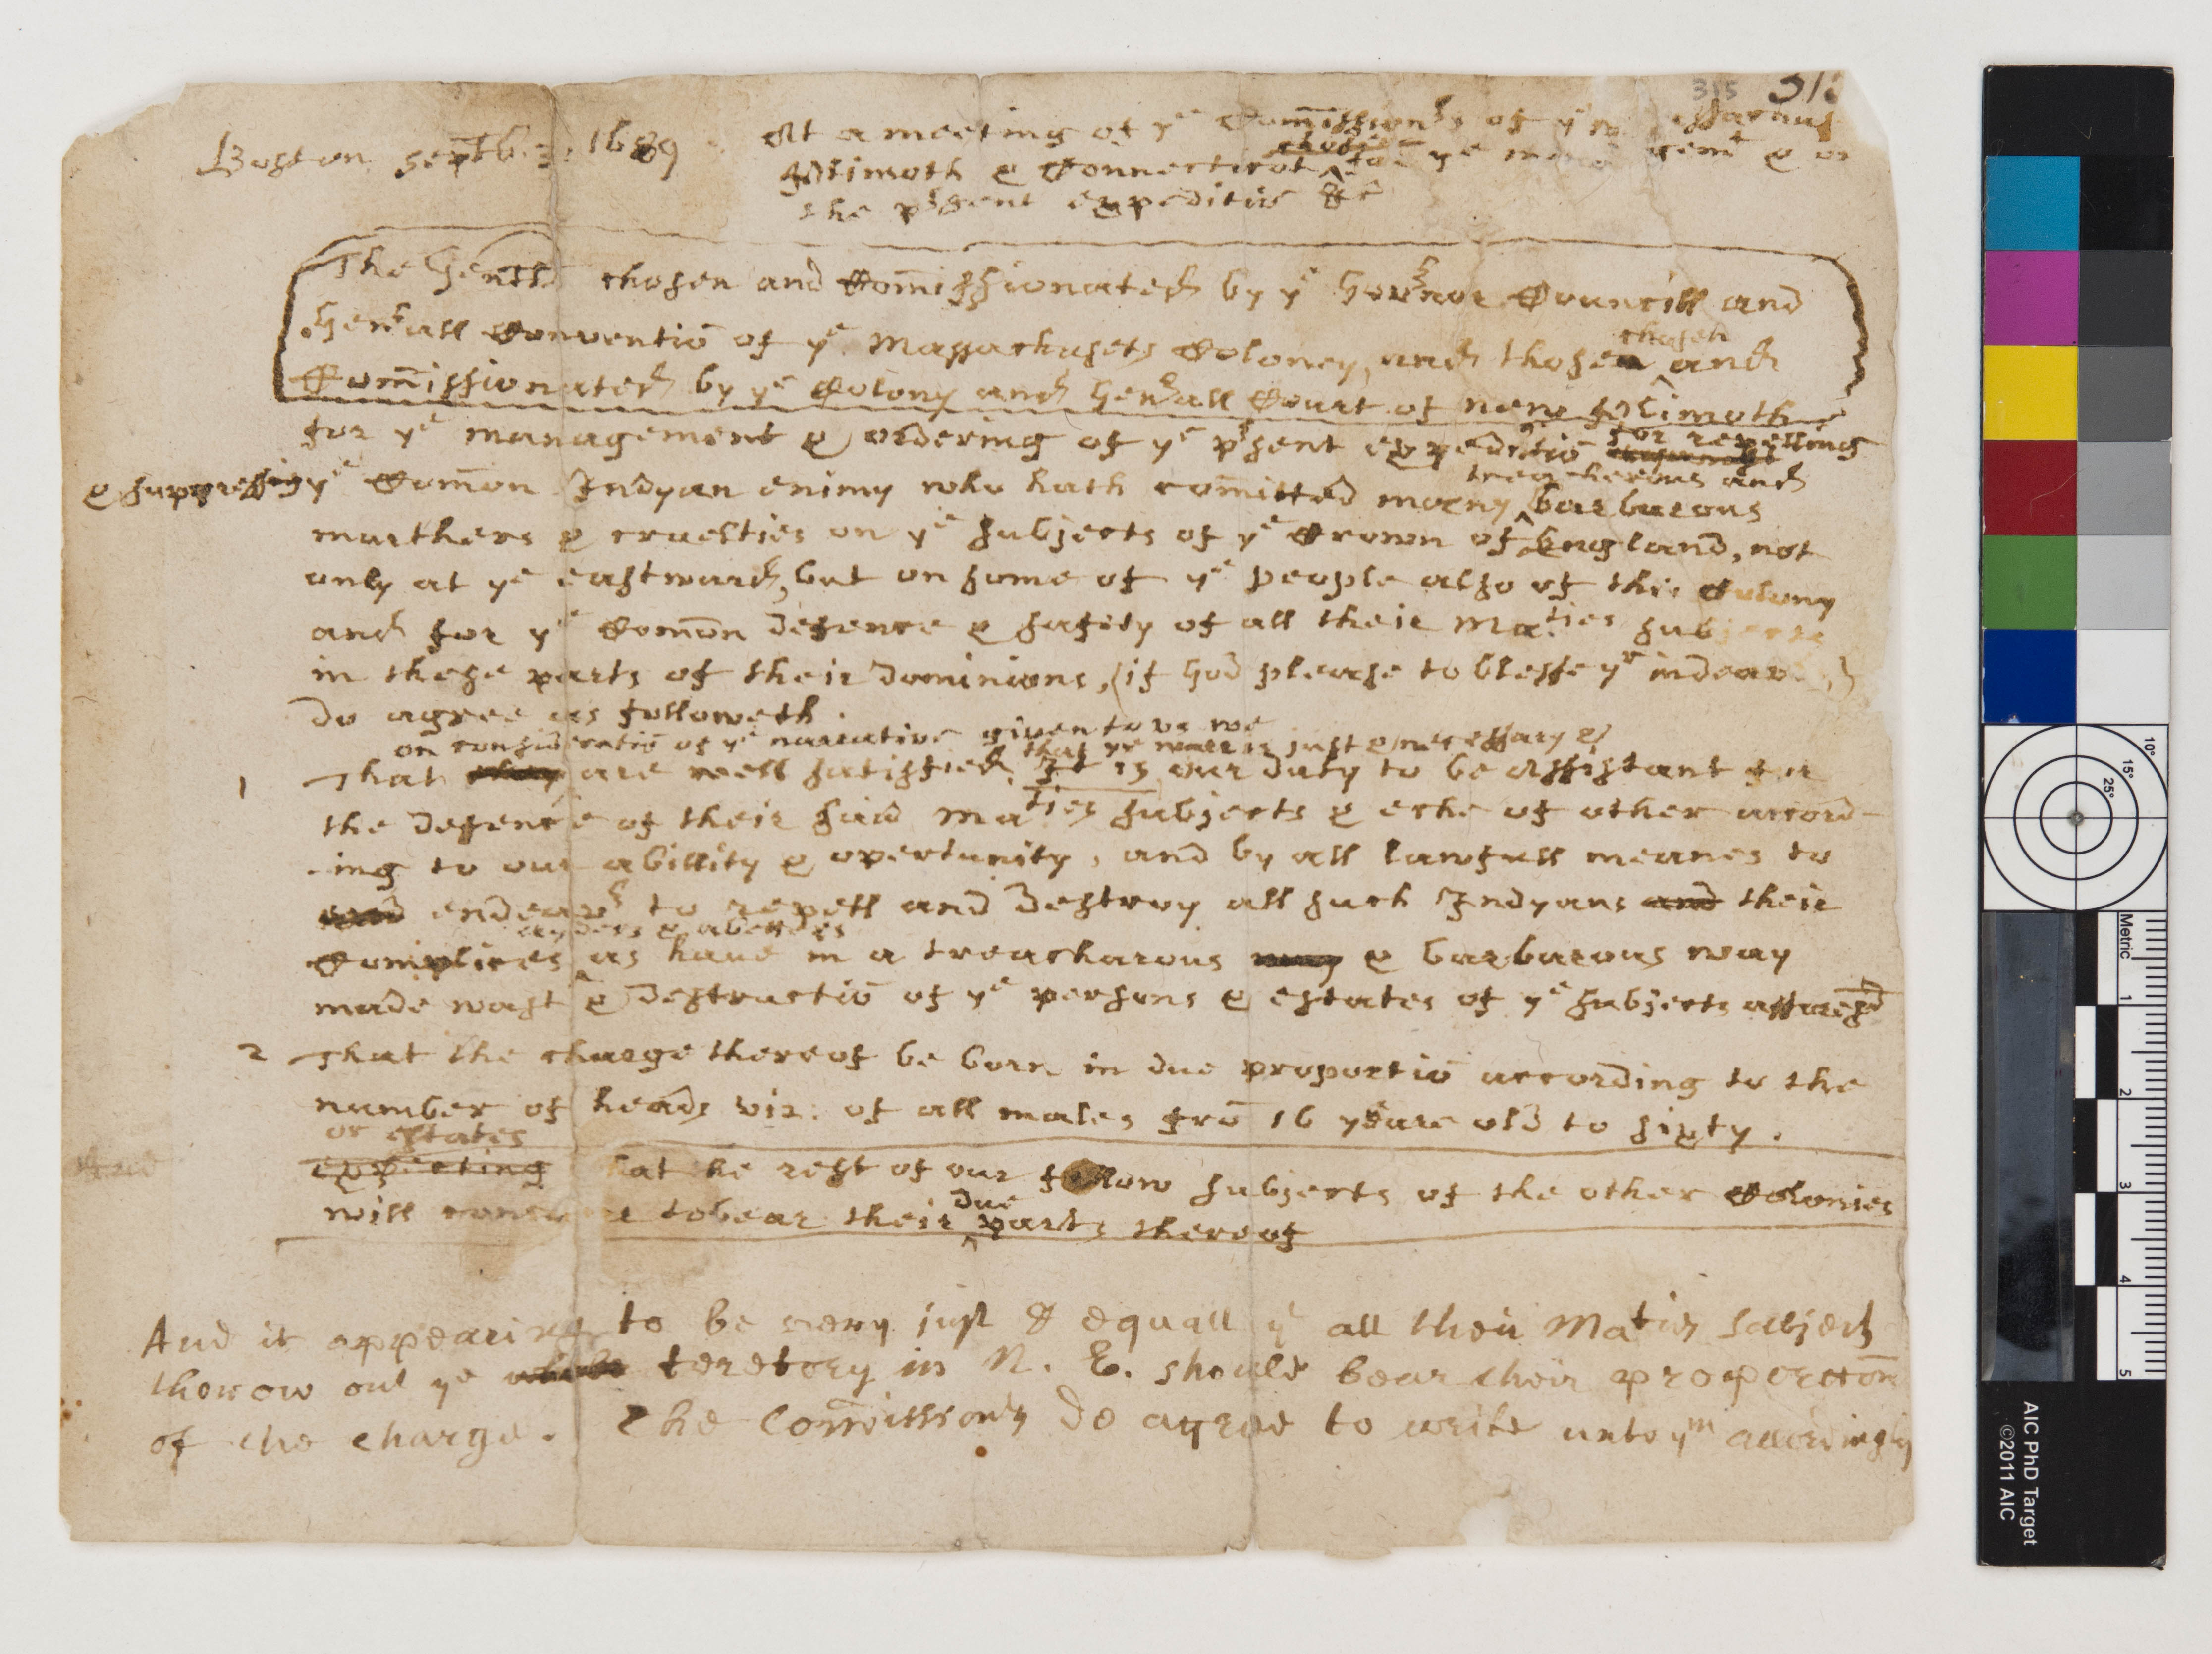 315
Boston Septb. 3: 1689
At a meeting of ye Com̄ission.rs of ye
chosen
Plimoth & Connecticot for ye gemt & or
the prsent expeditiō &c
The Gentl chosen and Com̄issionated by ye Gouernor Councill and
Genrall Conventiō of ye Massachusets Coloney, and those and
chosen
Com̄issionated by ye Colony and Genrall Court of new Plimoth
for ye management & ordering of ye prsent expeditiō for repelling
& supressing ye Com̄on Indyan enimy who hath com̄itted many barbarous
treacherous and
murthers & cruelties on ye subjects of ye Crown of England, not
only at ye eastward, but on some of ye people also of this Colony
and for ye Com̄on Defence & safety of all their Maties subjects
in these parts of their Dominions, (if God please to blesse yr indeavrs)
do agree as followeth
on consideratiō of ye narrative given to us we
that ye warr is just & necessary &
1 That they are well satisfied, It is our duty to be assistant for
the defence of their said Maties subjects & eche of other accord-
-ing to our abillity & opertunity, and by all lawfull meanes to
and endeavr to repell and Destroy all such Indyans and their
ayders & abettors
Complices as have in a treacharous way & barbarous way
made wast & Destructiō of ye persons & estates of ye subjects afforesd
2 That the charge thereof be born in due proportiō according to the
number of heads viz: of all males frō 16 yeare old to sixty.
or estates
expecting that the rest of our fellow subjects of the other Colonies
And
will to bear their parts thereof
due
And it appearing to be very just & equall yt all their Maties subjects
thorow out ye whole teretory in N. E. should bear their proportion
of the charge. The Com̄issionrs do agree to write unto ym accordingly
10°
15°
25°
Metric
1
2
3
4
5
AIC PhD Target
©2011 AIC